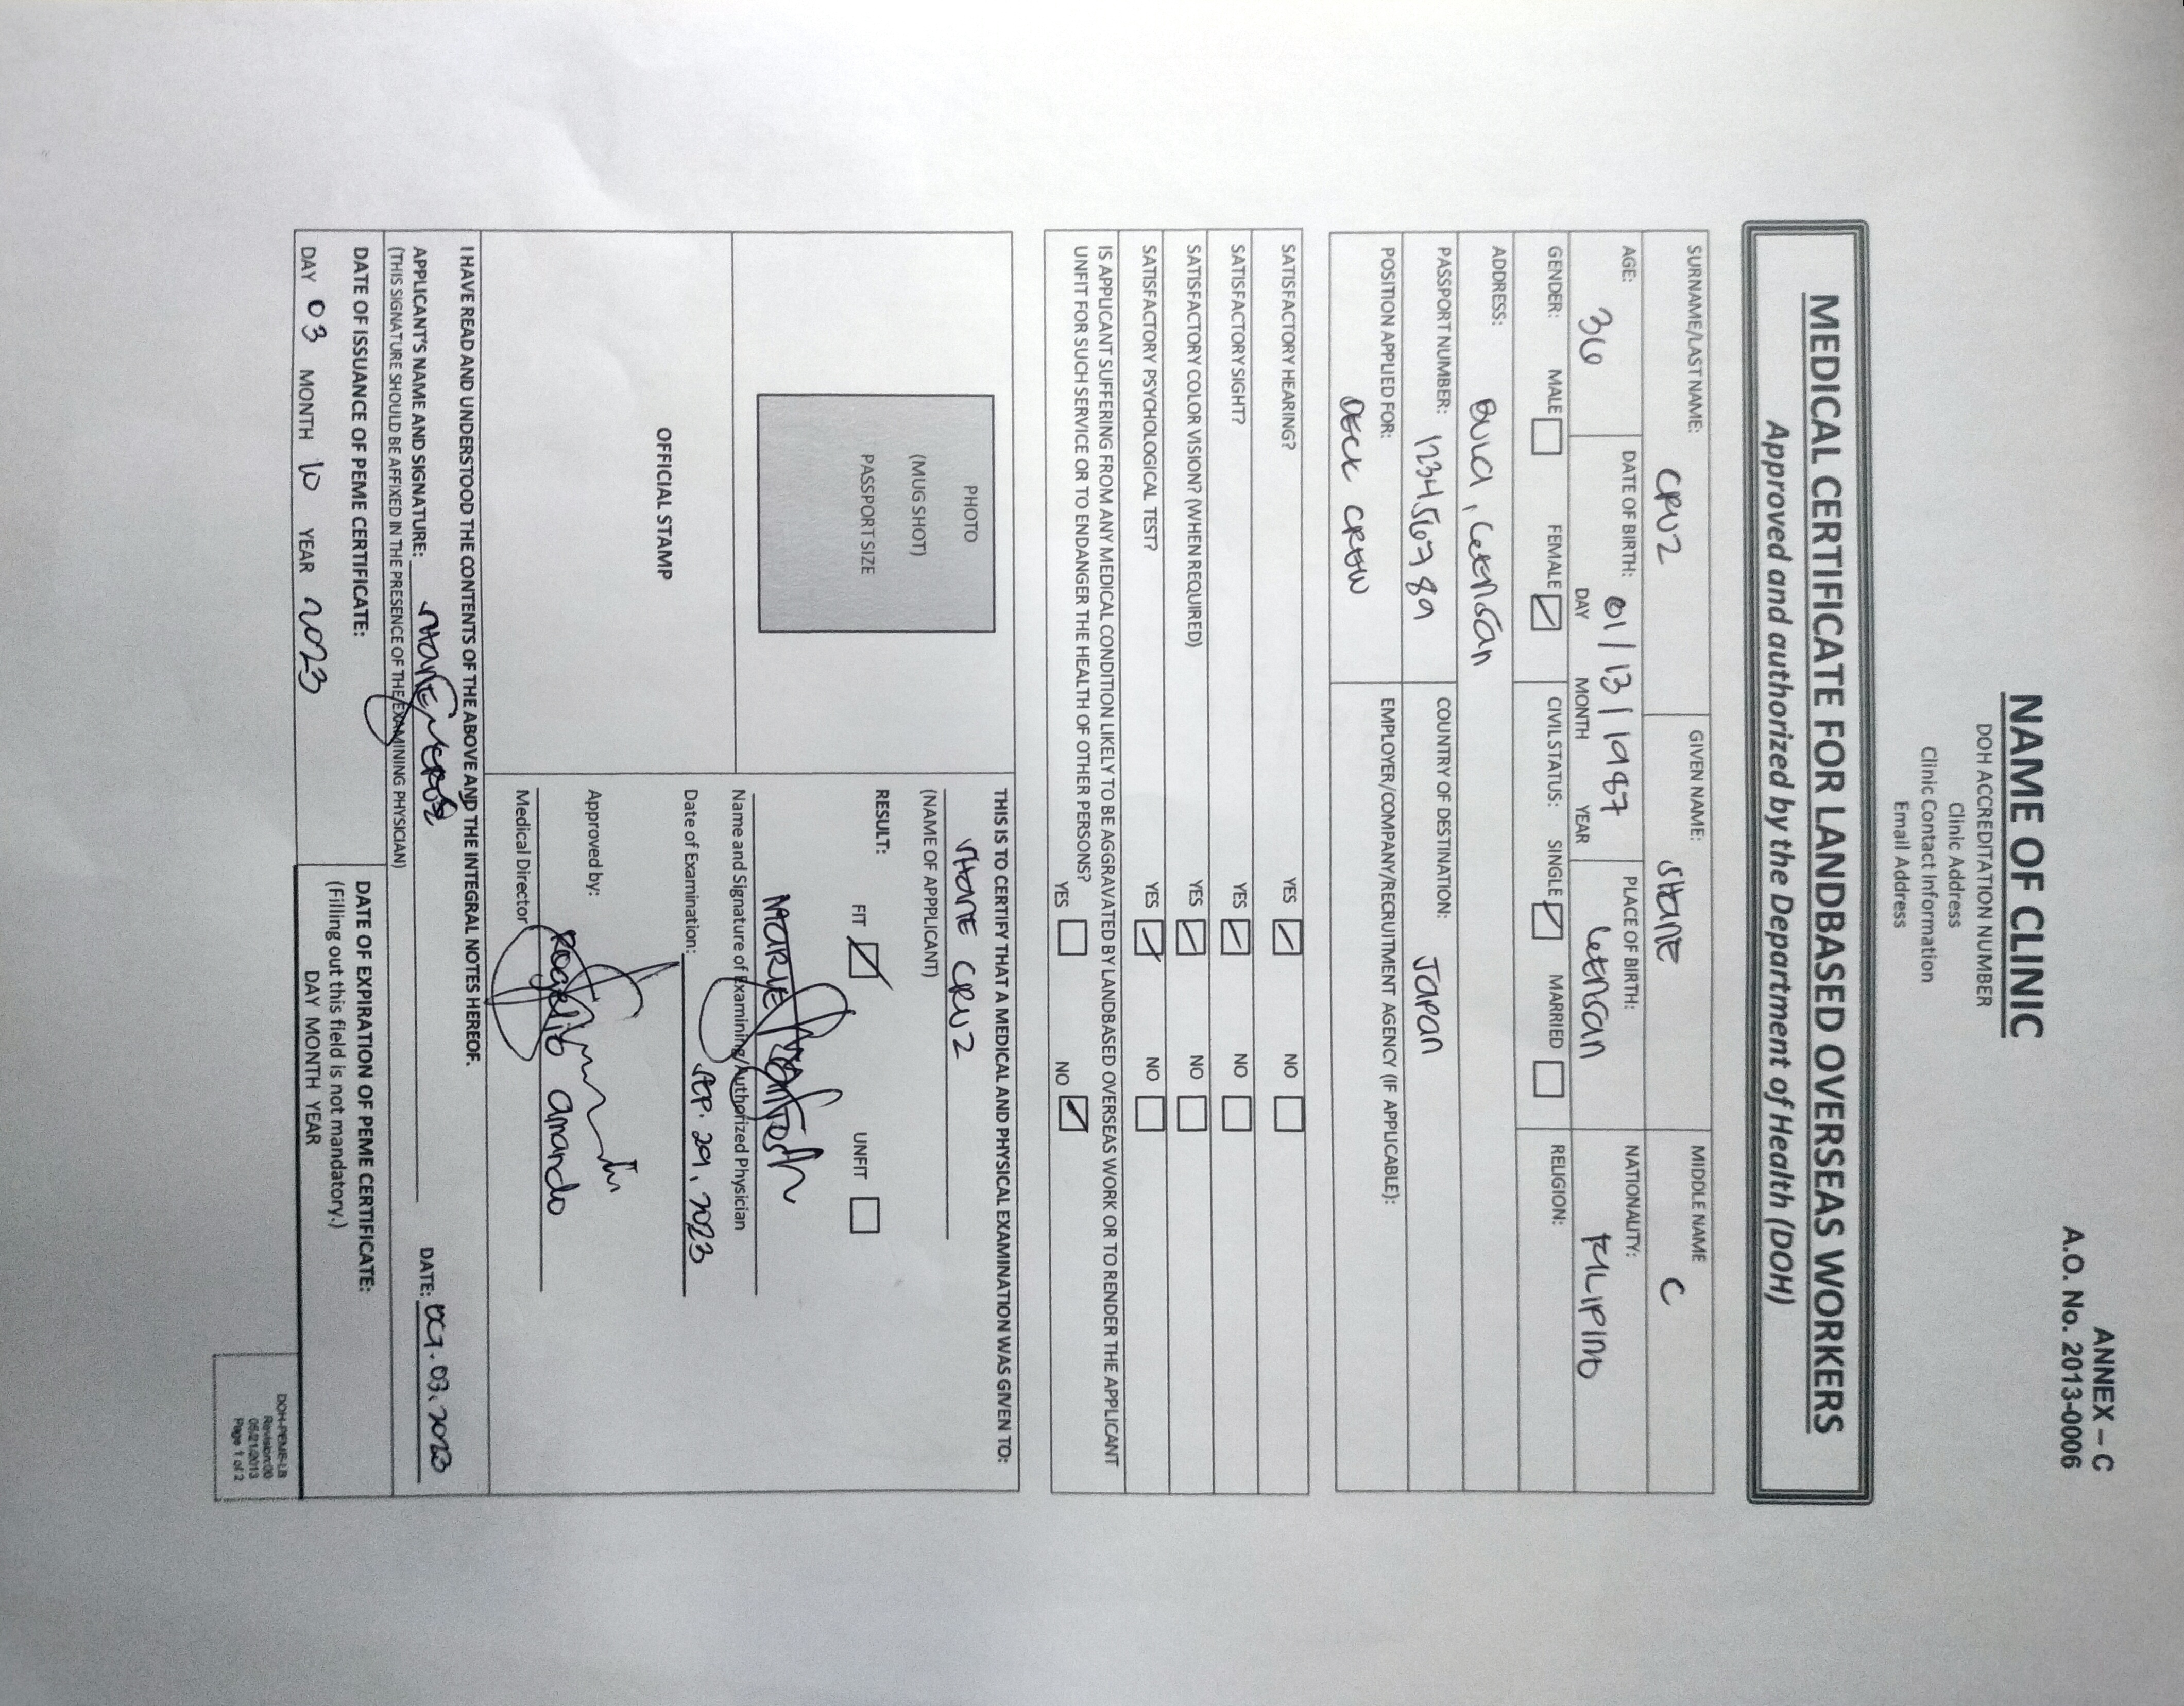 ANNEX – C
A.O. No. 2013-0006
NAME OF CLINIC
DOH ACCREDITATION NUMBER
Clinic Address
Clinic Contact Information
Email Address
MEDICAL CERTIFICATE FOR LANDBASED OVERSEAS WORKERS
Approved and authorized by the Department of Health (DOH)
SURNAME/LAST NAME: GIVEN NAME: MIDDLE NAME
CRUZ SHANE C
AGE: DATE OF BIRTH: PLACE OF BIRTH: NATIONALITY:
36 01/13/1987 GENSAN FILIPINO
DAY MONTH YEAR
GENDER: MALE FEMALE CIVIL STATUS: SINGLE MARRIED RELIGION:
ADDRESS: BULA, GENSAN
PASSPORT NUMBER: 123456789 COUNTRY OF DESTINATION: JAPAN
POSITION APPLIED FOR: EMPLOYER/COMPANY/RECRUITMENT AGENCY (IF APPLICABLE):
DECK CREW
SATISFACTORY HEARING? YES NO
SATISFACTORY SIGHT? YES NO
SATISFACTORY COLOR VISION? (WHEN REQUIRED) YES NO
SATISFACTORY PSYCHOLOGICAL TEST? YES NO
IS APPLICANT SUFFERING FROM ANY MEDICAL CONDITION LIKELY TO BE AGGRAVATED BY LANDBASED OVERSEAS WORK OR TO RENDER THE APPLICANT
UNFIT FOR SUCH SERVICE OR TO ENDANGER THE HEALTH OF OTHER PERSONS?
YES NO
PHOTO
(MUG SHOT)
PASSPORT SIZE
OFFICIAL STAMP
THIS IS TO CERTIFY THAT A MEDICAL AND PHYSICAL EXAMINATION WAS GIVEN TO:
SHANE CRUZ
(NAME OF APPPLICANT)
RESULT:
FIT UNFIT
MARIE
Name and Signature of Examining/Authorized Physician
Date of Examination: SEP. 29, 2023
Approved by:
Rogelio Amando
Medical Director
I HAVE READ AND UNDERSTOOD THE CONTENTS OF THE ABOVE AND THE INTEGRAL NOTES HEREOF.
APPLICANT'S NAME AND SIGNATURE: SHANE CRUZ DATE: OCT. 03, 2023
(THIS SIGNATURE SHOULD BE AFFIXED IN THE PRESENCE OF THE EXAMINING PHYSICIAN)
DATE OF ISSUANCE OF PEME CERTIFICATE:
DAY 03 MONTH 10 YEAR 2023
DATE OF EXPIRATION OF PEME CERTIFICATE:
(Filling out this field is not mandatory.)
DAY MONTH YEAR
DOH-PEME-LB
Revision:00
05/21/2013
Page 1 of 2